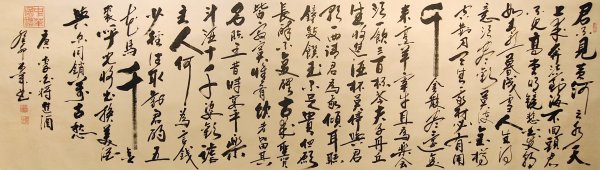 君不見黃河之水天
上來奔流到海不回君
不見高堂明鏡悲白髮朝
如青絲暮成雪人生得
意須盡歡莫使金樽
空對月天生我材必有用
千
金散盡還復
來烹羊宰牛且為樂會
須飲三百杯岑夫子丹丘
生將進酒杯莫停與君
歌一曲請君為我傾耳聽
鐘鼓饌玉不足貴但願
長醉不復醒古來聖賢
皆寂寞惟有飲者留其
名陳王昔時宴平樂
斗酒十千恣歡謔
主人何為言錢
少徑須沽取對君酌五
花馬千金
裘呼兒將出換美酒
與爾同銷萬古愁
唐李白將進酒